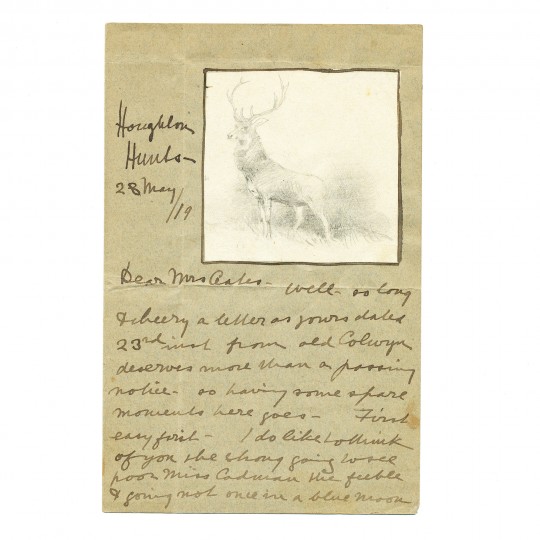 Houghton
Hunts-
28 May
/19
Dear Mrs Oates - Well - so long
& cheery a letter as yours dated
23rd inst from old Colwyn
deserves more than a passing
notice - so having some spare
moments here goes - First
easy first - I do like to think
of you the strong going to see
poor Miss Cadman the feeble
& going not once in a blue moon